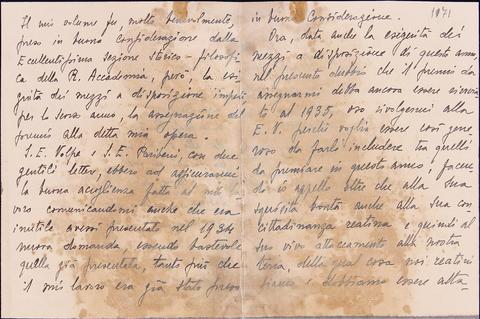 Il mio volume fu, molto benevolmente,
preso in buona considerazione dalla
Eccellentissima Sezione storico-filosofi-
ca della R. Accademia, però, la esi-
guità dei mezzi a disposizione impedì
per lo scorso anno, la assegnazione del
premio alla detta mia opera.
S. E. Volpe e S. E. Paribeni, con due
gentili lettere, ebbero ad assicurarmi
la buona accoglienza fatta al mio la-
voro comunicandomi anche che era
inutile avessi presentato nel 1934
nuova domanda, essendo bastevole
quella già presentata, tanto più che
il mio lavoro era già stato preso
in buona Considerazione.
1971
Ora, data anche la esiguità dei
mezzi a disposizione di questo anno,
nel presente dubbio che il premio da
assegnarmi debba ancora essere
to al 1935, oso rivolgermi alla
E. V. perché voglia essere così gene-
roso da farlo includere tra quelli
da premiare in questo anno, facen-
do io appello oltre che alla sua
squisita bontà anche alla sua con
cittadinanza reatina e quindi al
suo vivo attaccamento alla nostra
terra, della qual cosa noi reatini
siamo e dobbiamo essere alta-